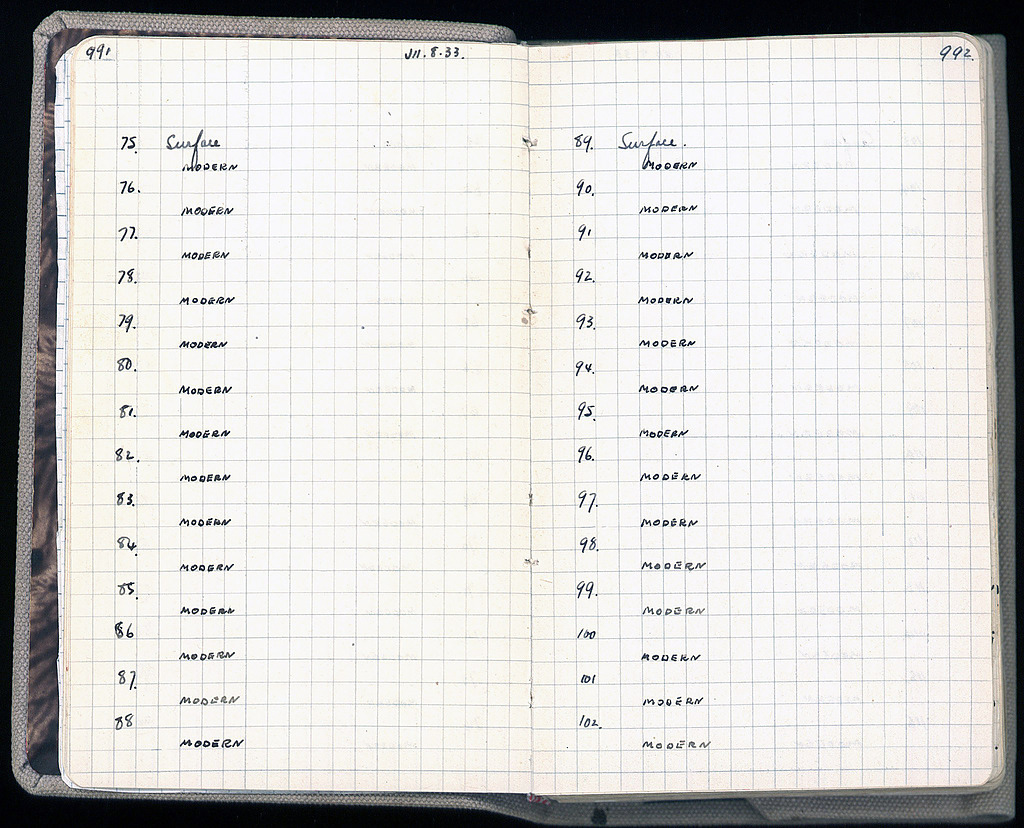 991 JII.8.33.
75. Surface
MODERN
76.
MODERN
77.
MODERN
78.
MODERN
79.
MODERN
80.
MODERN
81.
MODERN
82.
MODERN
83.
MODERN
84.
MODERN
85.
MODERN
86
MODERN
87.
MODERN
88
MODERN
992.
89. Surface.
MODERN
90.
MODERN
91
MODERN
92.
MODERN
93.
MODERN
94.
MODERN
95.
MODERN
96.
MODERN
97.
MODERN
98.
MODERN
99.
MODERN
100
MODERN
101
MODERN
102.
MODERN